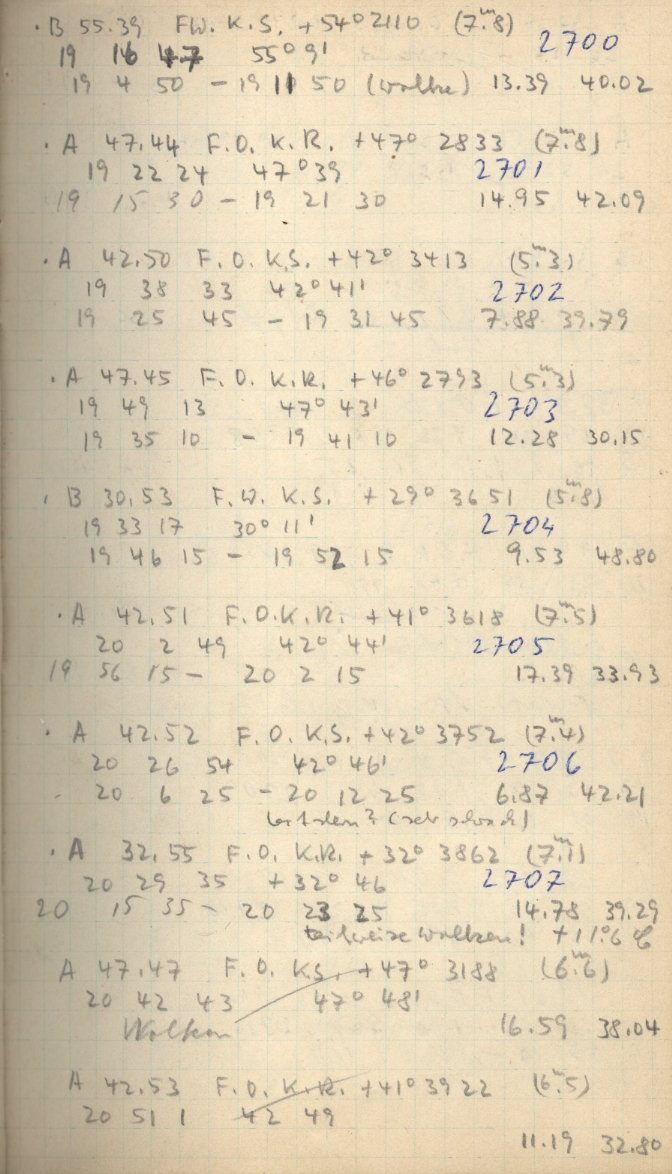 · B 55.39 F.W. K.S. +54° 2110 (7ᵐ.8)
19 16 47 55° 9' 2700
19 4 50 – 19 11 50 (Wolke) 13.39 40.02
· A 47.44 F.O. K.R. +47° 2833 (7ᵐ.8)
19 22 24 47° 39 2701
19 15 30 – 19 21 30 14.95 42.09
· A 42.50 F.O. K.S. +42° 3413 (5ᵐ.3)
19 38 33 42° 41' 2702
19 25 45 – 19 31 45 7.88 39.79
· A 47.45 F.O. K.R. +46° 2793 (5ᵐ.3)
19 49 13 47° 43' 2703
19 35 10 – 19 41 10 12.28 30.15
· B 30.53 F.W. K.S. +29° 3651 (5ᵐ.8)
19 33 17 30° 11' 2704
19 46 15 – 19 52 15 9.53 48.80
· A 42.51 F.O. K.R. +41° 3618 (7ᵐ.5)
20 2 49 42° 44' 2705
19 56 15 – 20 2 15 17.39 33.93
· A 42.52 F.O. K.S. +42° 3752 (7ᵐ.4)
20 26 54 42° 46' 2706
20 6 25 – 20 12 25 6.87 42.21
(sehr schwach)
· A 32.55 F.O. K.R. +32° 3862 (7ᵐ.1)
20 29 35 +32° 46 2707
20 15 35 – 20 23 25 14.78 39.29
teilweise Wolken! +11°.6 C
A 47.47 F.O. K.S. +47° 3188 (6ᵐ.6)
20 42 43 47° 48'
Wolken 16.59 38.04
A 42.53 F.O. K.R. +41° 3922 (6ᵐ.5)
20 51 1 42 49
11.19 32.80